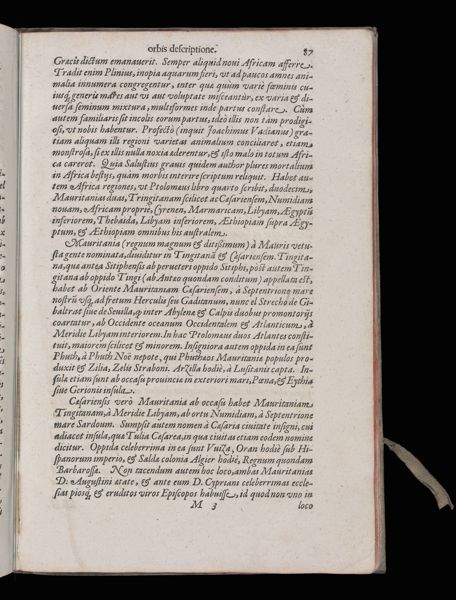 orbis descriptione. 87
Græcis dictum emanauerit. Semper aliquid noui Africam afferre.
Tradit enim Plinius, inopia aquarum fieri, vt ad paucos amnes ani-
malia innumera congregentur, inter quæ quùm variè fœminis cu-
iusq; generis mares aut vi aut voluptate misceantur, ex varia & di-
uersa seminum mixtura, multiformes inde partus constare. Cùm
autem familiaris sit incolis eorum partus, ideò illis non tàm prodigi-
osi, vt nobis habentur. Profectò (inquit Joachimus Vadianus) gra-
tiam aliquam illi regioni varietas animalium conciliaret, etiam
monstrosa, si ex illis nulla noxia alerentur, & isto malo in totum Afri-
ca careret. Quia Salustius grauis quidem author plures mortalium
in Africa bestijs, quàm morbis interire scriptum reliquit. Habet au-
tem Africa regiones, vt Ptolomæus libro quarto scribit, duodecim,
Mauritanias duas, Tringitanam scilicet ac Cæsariensem, Numidiam
nouam, Africam propriè, Cyrenen, Marmaricam, Libyam, Ægyptũ
inferiorem, Thebaida, Libyam inferiorem, Æthiopiam supra Ægy-
ptum, & Æthiopiam omnibus his australem.
Mauritania (regnum magnum & ditißimum) à Mauris vetu-
sta gente nominata, diuiditur in Tingitanã & Cæsariensem. Tingita-
na, quæ antea Sitiphensis ab perueteri oppido Sitphi, pòst autem Tin-
gitana ab oppido Tingi (ab Antæo quondam conditum) appellata est,
habet ab Oriente Mauritaniam Cæsariensem, à Septentrione mare
nostrũ vsq; ad fretum Herculis seu Gaditanum, nunc el Strecho de Gi-
baltrat siue de Seuilla, inter Abylene & Calpis duobus promontorijs
coartatur, ab Occidente oceanum Occidentalem & Atlanticum, à
Meridie Libyam interiorem. In hac Ptolomæus duos Atlantes consti-
tuit, maiorem scilicet & minorem. Insigniora autem oppida in ea sunt
Phuth, à Phuth Noë nepote, qui Phuthæos Mauritaniæ populos pro-
duxit & Zilia, Zelis Straboni. Arzilla hodiè, à Lusitanis capta. In-
sulæ etiam sunt ab occasu prouincia in exteriori mari, Pœna, & Eythia
siue Gerionis insula.
Cæsariensis verò Mauritania ab occasu habet Mauritaniam
Tingitanam, à Meridie Libyam, ab ortu Numidiam, à Septentrione
mare Sardoum. Sumpsit autem nomen à Cæsaria ciuitate insigni, cui
adiacet insula, quæ Iulia Cæsarea, in qua ciuitas etiam eodem nomine
dicitur. Oppida celeberrima in ea sunt Vuiza, Oran hodiè sub Hi-
spanorum imperio, & Saldæ colonia Algier hodiè, Regnum quondam
Barbarossæ. Non tacendum autem hoc loco, ambas Mauritanias
D. Augustini ætate, & ante eum D. Cypriani celeberrimas eccle-
sias piosq; & eruditos viros Episcopos habuisse, id quod non vno in
M 3 loco